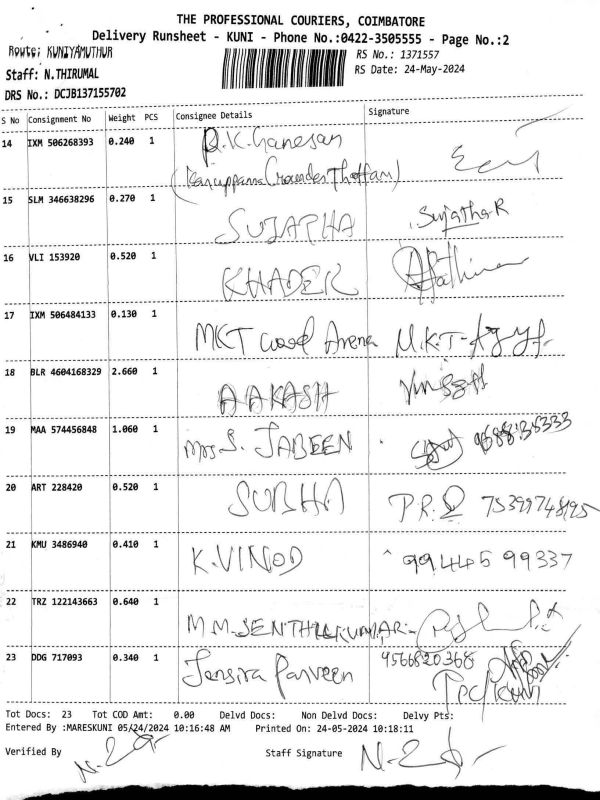 THE PROFESSIONAL COURIERS, COIMBATORE
Delivery Runsheet - KUNI - Phone No.:0422-3505555 - Page No.:2
Route: KUNIYAMUTHUR
RS No.: 1371557
Staff: N.THIRUMAL
RS Date: 24-May-2024
DRS No.: DCJB137155702
S No Consignment No Weight PCS Consignee Details Signature
14 IXM 506268393 0.240 1 R.K. Ganesan
(Karuppanna Gounder Thottam)
15 SLM 346638296 0.270 1 SUJATHA Sujatha R
16 VLI 153920 0.520 1 KHADER Fathima
17 IXM 506484133 0.130 1 MKT wood Arena M.K.T-
18 BLR 4604168329 2.660 1 AAKASH
19 MAA 574456848 1.060 1 Mrs S. JABEEN
20 ART 228420 0.520 1 SUBHA P.R.
21 KMU 3486940 0.410 1 K.VINOD 99445 99337
22 TRZ 122143663 0.640 1 M M.SENTHILKUMAR
23 DDG 717093 0.340 1 Jensira Parveen 9566820368
TPC/KUNI
Tot Docs: 23 Tot COD Amt: 0.00 Delvd Docs: Non Delvd Docs: Delvy Pts:
Entered By :MARESKUNI 05/24/2024 10:16:48 AM Printed On: 24-05-2024 10:18:11
Verified By Staff Signature